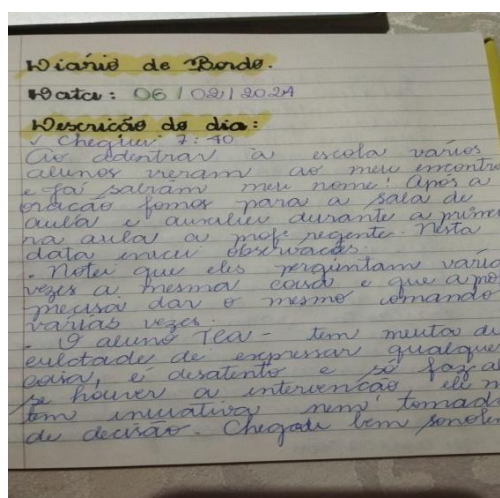 Diário de Bordo.
Data: 06/02/2024
Descrição do dia:
✓ Cheguei 7:40
Ao adentrar à escola vários
alunos vieram ao meu encontro
e já sabiam meu nome! Após a
oração fomos para a sala de
aula e auxiliei durante a primei
ra aula a profª regente. Nesta
data iniciei observações.
. Notei que eles perguntam vária
vezes a mesma coisa e que a pro
precisa dar o mesmo comando
várias vezes.
. O aluno TEA - tem muita di
culdade de expressar qualque
coisa, é desatento e só faz al
se houver a intervenção, ele n
tem iniciativa nem tomada
de decisão. Chegou bem sonolen